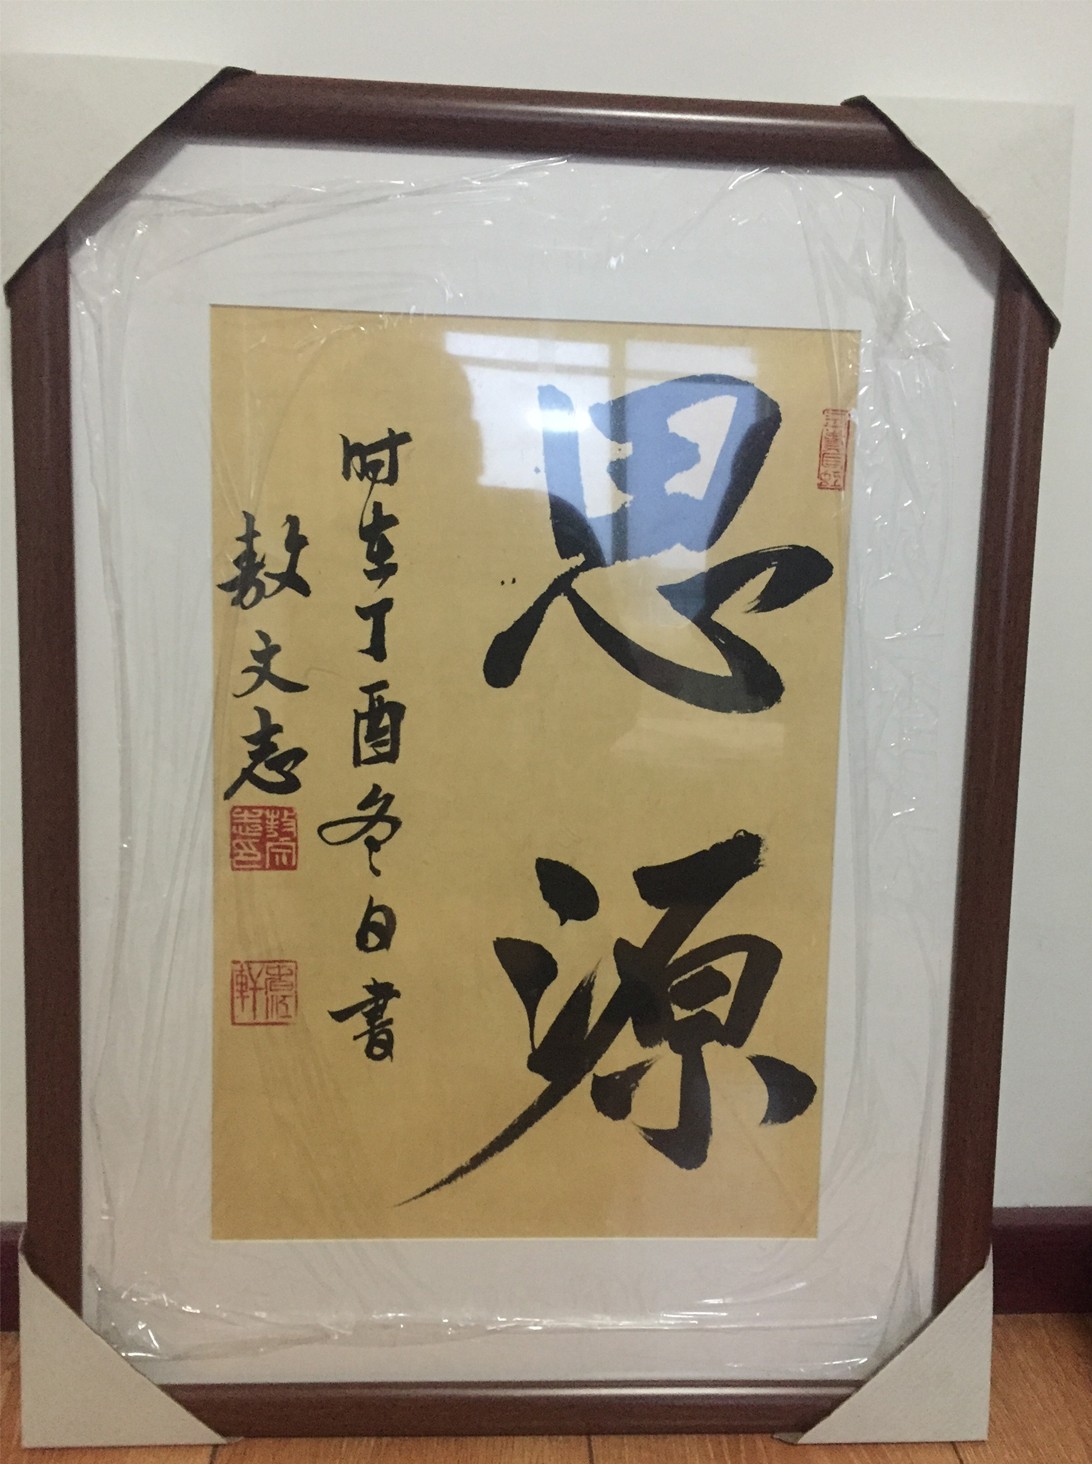 思源
时在丁酉冬日书
敖文志